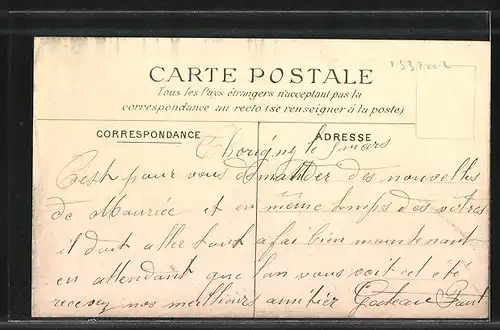 1337
CARTE POSTALE
Tous les Pays étrangers n'acceptant pas la
correspondance au recto (se renseigner à la poste)
CORRESPONDANCE
ADRESSE
Thorigny le mars
C'est pour vous demander des nouvelles
de Maurice et en même temps des vôtres
il doit aller tout a fai bien maintenant
en attendant que l'on vous voit cet été
recevez nos meilleurs amitier